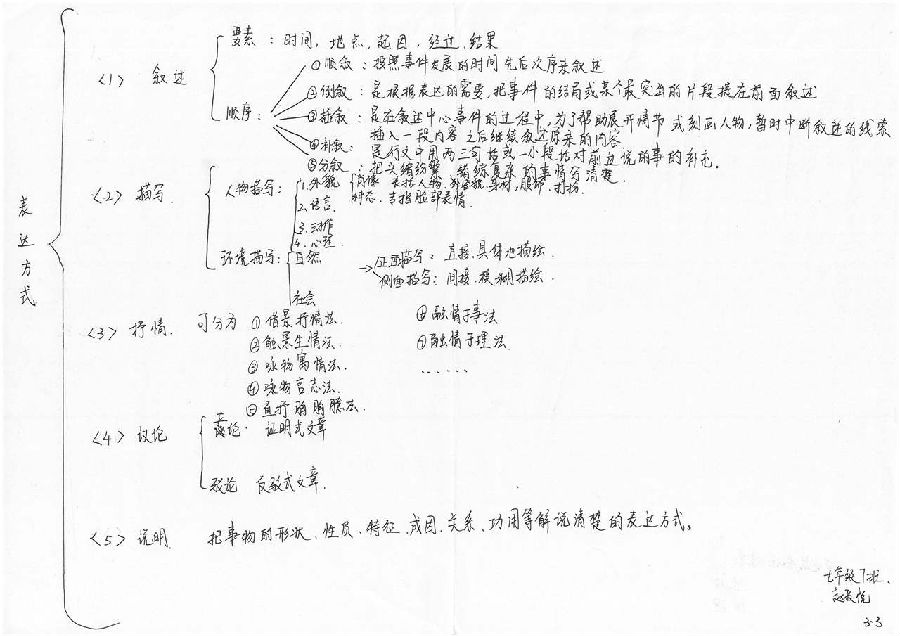 表达方式
<1> 叙述
要素：时间，地点，起因，经过，结果
顺序：
①顺叙：按照事件发展的时间先后次序来叙述
②倒叙：是根据表达的需要，把事件的结局或某个最突出的片段提在前面叙述
③插叙：是在叙述中心事件的过程中，为了帮助展开情节或刻画人物，暂时中断叙述的线索
插入一段内容之后继续叙述原来的内容
④补叙：是行文中用两三句话或一小段话对前边说的事的补充。
⑤分叙：把头绪纷繁 错综复杂的事情分清楚
<2> 描写
人物描写：
1.外貌
肖像
神态，主指脸部表情.
2.语言
3.动作
4.心理
环境描写：
自然
社会
正面描写：直接、具体地描绘
侧面描写：间接、模糊描绘.
<3> 抒情. 可分为
①借景抒情法.
②触景生情法.
③咏物寓情法.
④咏物言志法.
⑤直抒胸臆法.
⑥融情于事法
⑦融情于理法
......
<4> 议论
立论. 证明式文章
驳论 反驳式文章.
<5> 说明 把事物的形状、性质、特征、成因、关系、功用等解说清楚的表达方式。
七年级7班.
3-3